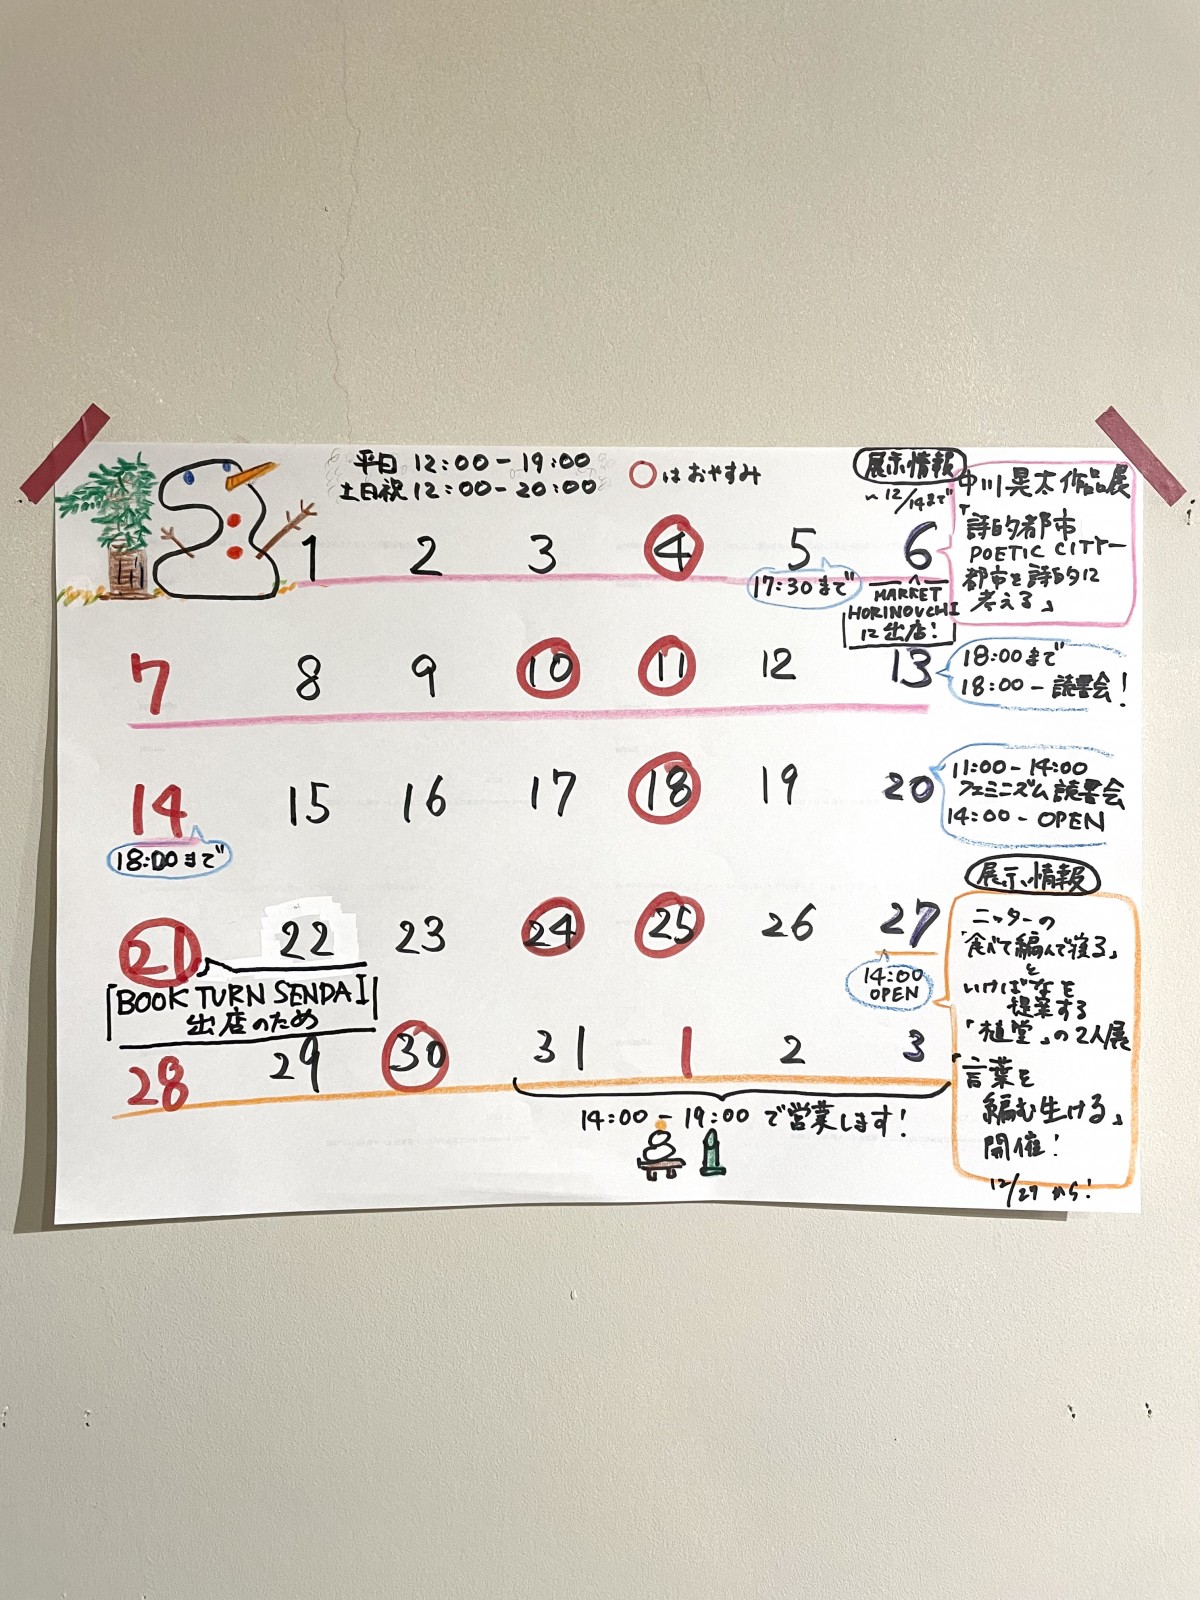 平日 12:00-19:00
土日祝 12:00-20:00
○はおやすみ
展示情報
〜12/14まで
中川晃太作品展
「詩的都市
POETIC CITYー
都市を詩的に
考える」
1 2 3 4 5 6
17:30まで
MARKET
HORINOUCHI
に出店!
7 8 9 10 11 12 13
18:00まで
18:00-読書会!
14 15 16 17 18 19 20
18:00まで
11:00-14:00
フェミニズム読書会
14:00-OPEN
21 22 23 24 25 26 27
BOOK TURN SENDAI
出店のため
14:00
OPEN
28 29 30 31 1 2 3
14:00-19:00で営業します!
展示情報
ニッターの
「食べて編んで寝る」
と
いけばなを
提案する
「植堂」の2人展
「言葉を
編む生ける」
開催!
12/27から!